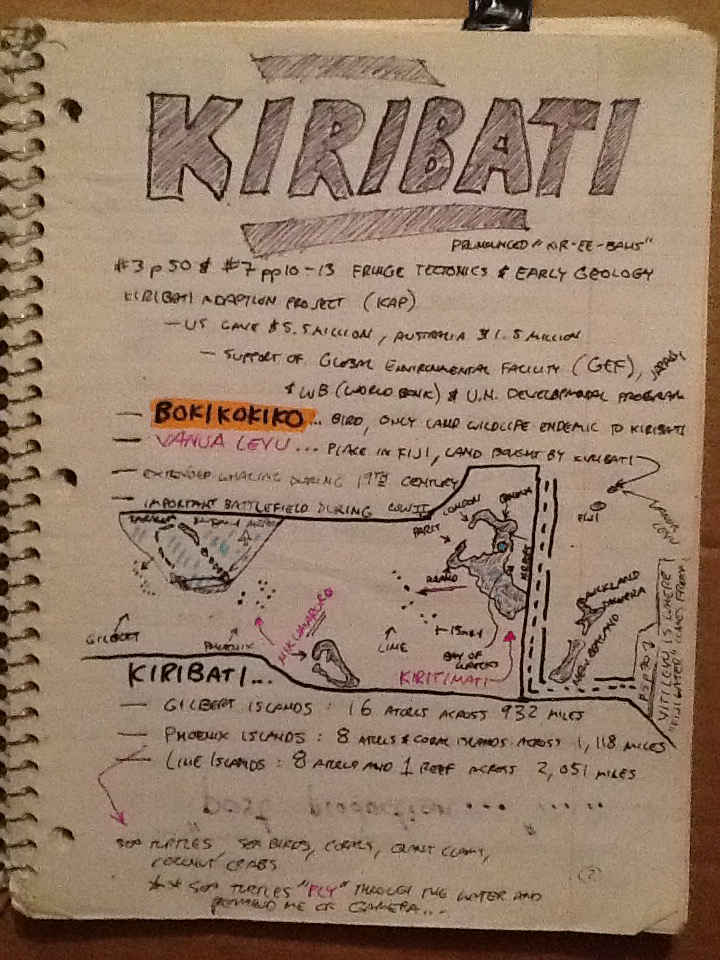 KIRIBATI
PRONOUNCED "KIR-EE-BAHS"
#3 p 50 & #7 pp 10-13 FRINGE TECTONICS & EARLY GEOLOGY
KIRIBATI ADAPTION PROJECT (KAP)
— US GAVE $5.5 MILLION, AUSTRALIA $1.5 MILLION
— SUPPORT OF GLOBAL ENVIRONMENTAL FACILITY (GEF), JAPAN
& WB (WORLD BANK) & U.N. DEVELOPMENTAL PROGRAM
— BOKIKOKIKO... BIRD, ONLY LAND WILDLIFE ENDEMIC TO KIRIBATI
— VANUA LEVU... PLACE IN FIJI, LAND BOUGHT BY KIRIBATI
— EXTENDED WHALING DURING 19TH CENTURY
— IMPORTANT BATTLEFIELD DURING WWII
LONDON
BANANA
PARIS
POLAND
FIJI
VANUA LEVU
AUCKLAND
NEW ZEALAND
GILBERT
PHOENIX
NIKUMARORO
LINE
BAY OF WRECKS
KIRITIMATI
VITI LEVU IS WHERE
"FIJI WATER" COMES FROM
KIRIBATI...
— GILBERT ISLANDS : 16 ATOLLS ACROSS 932 MILES
— PHOENIX ISLANDS : 8 ATOLLS & CORAL ISLANDS ACROSS 1,118 MILES
— LINE ISLANDS : 8 ATOLLS AND 1 REEF ACROSS 2,051 MILES
SEA TURTLES SEA BIRDS, CORALS, GIANT CLAMS,
COCONUT CRABS
** SEA TURTLES "FLY" THROUGH THE WATER AND
REMIND ME OF GAMERA...